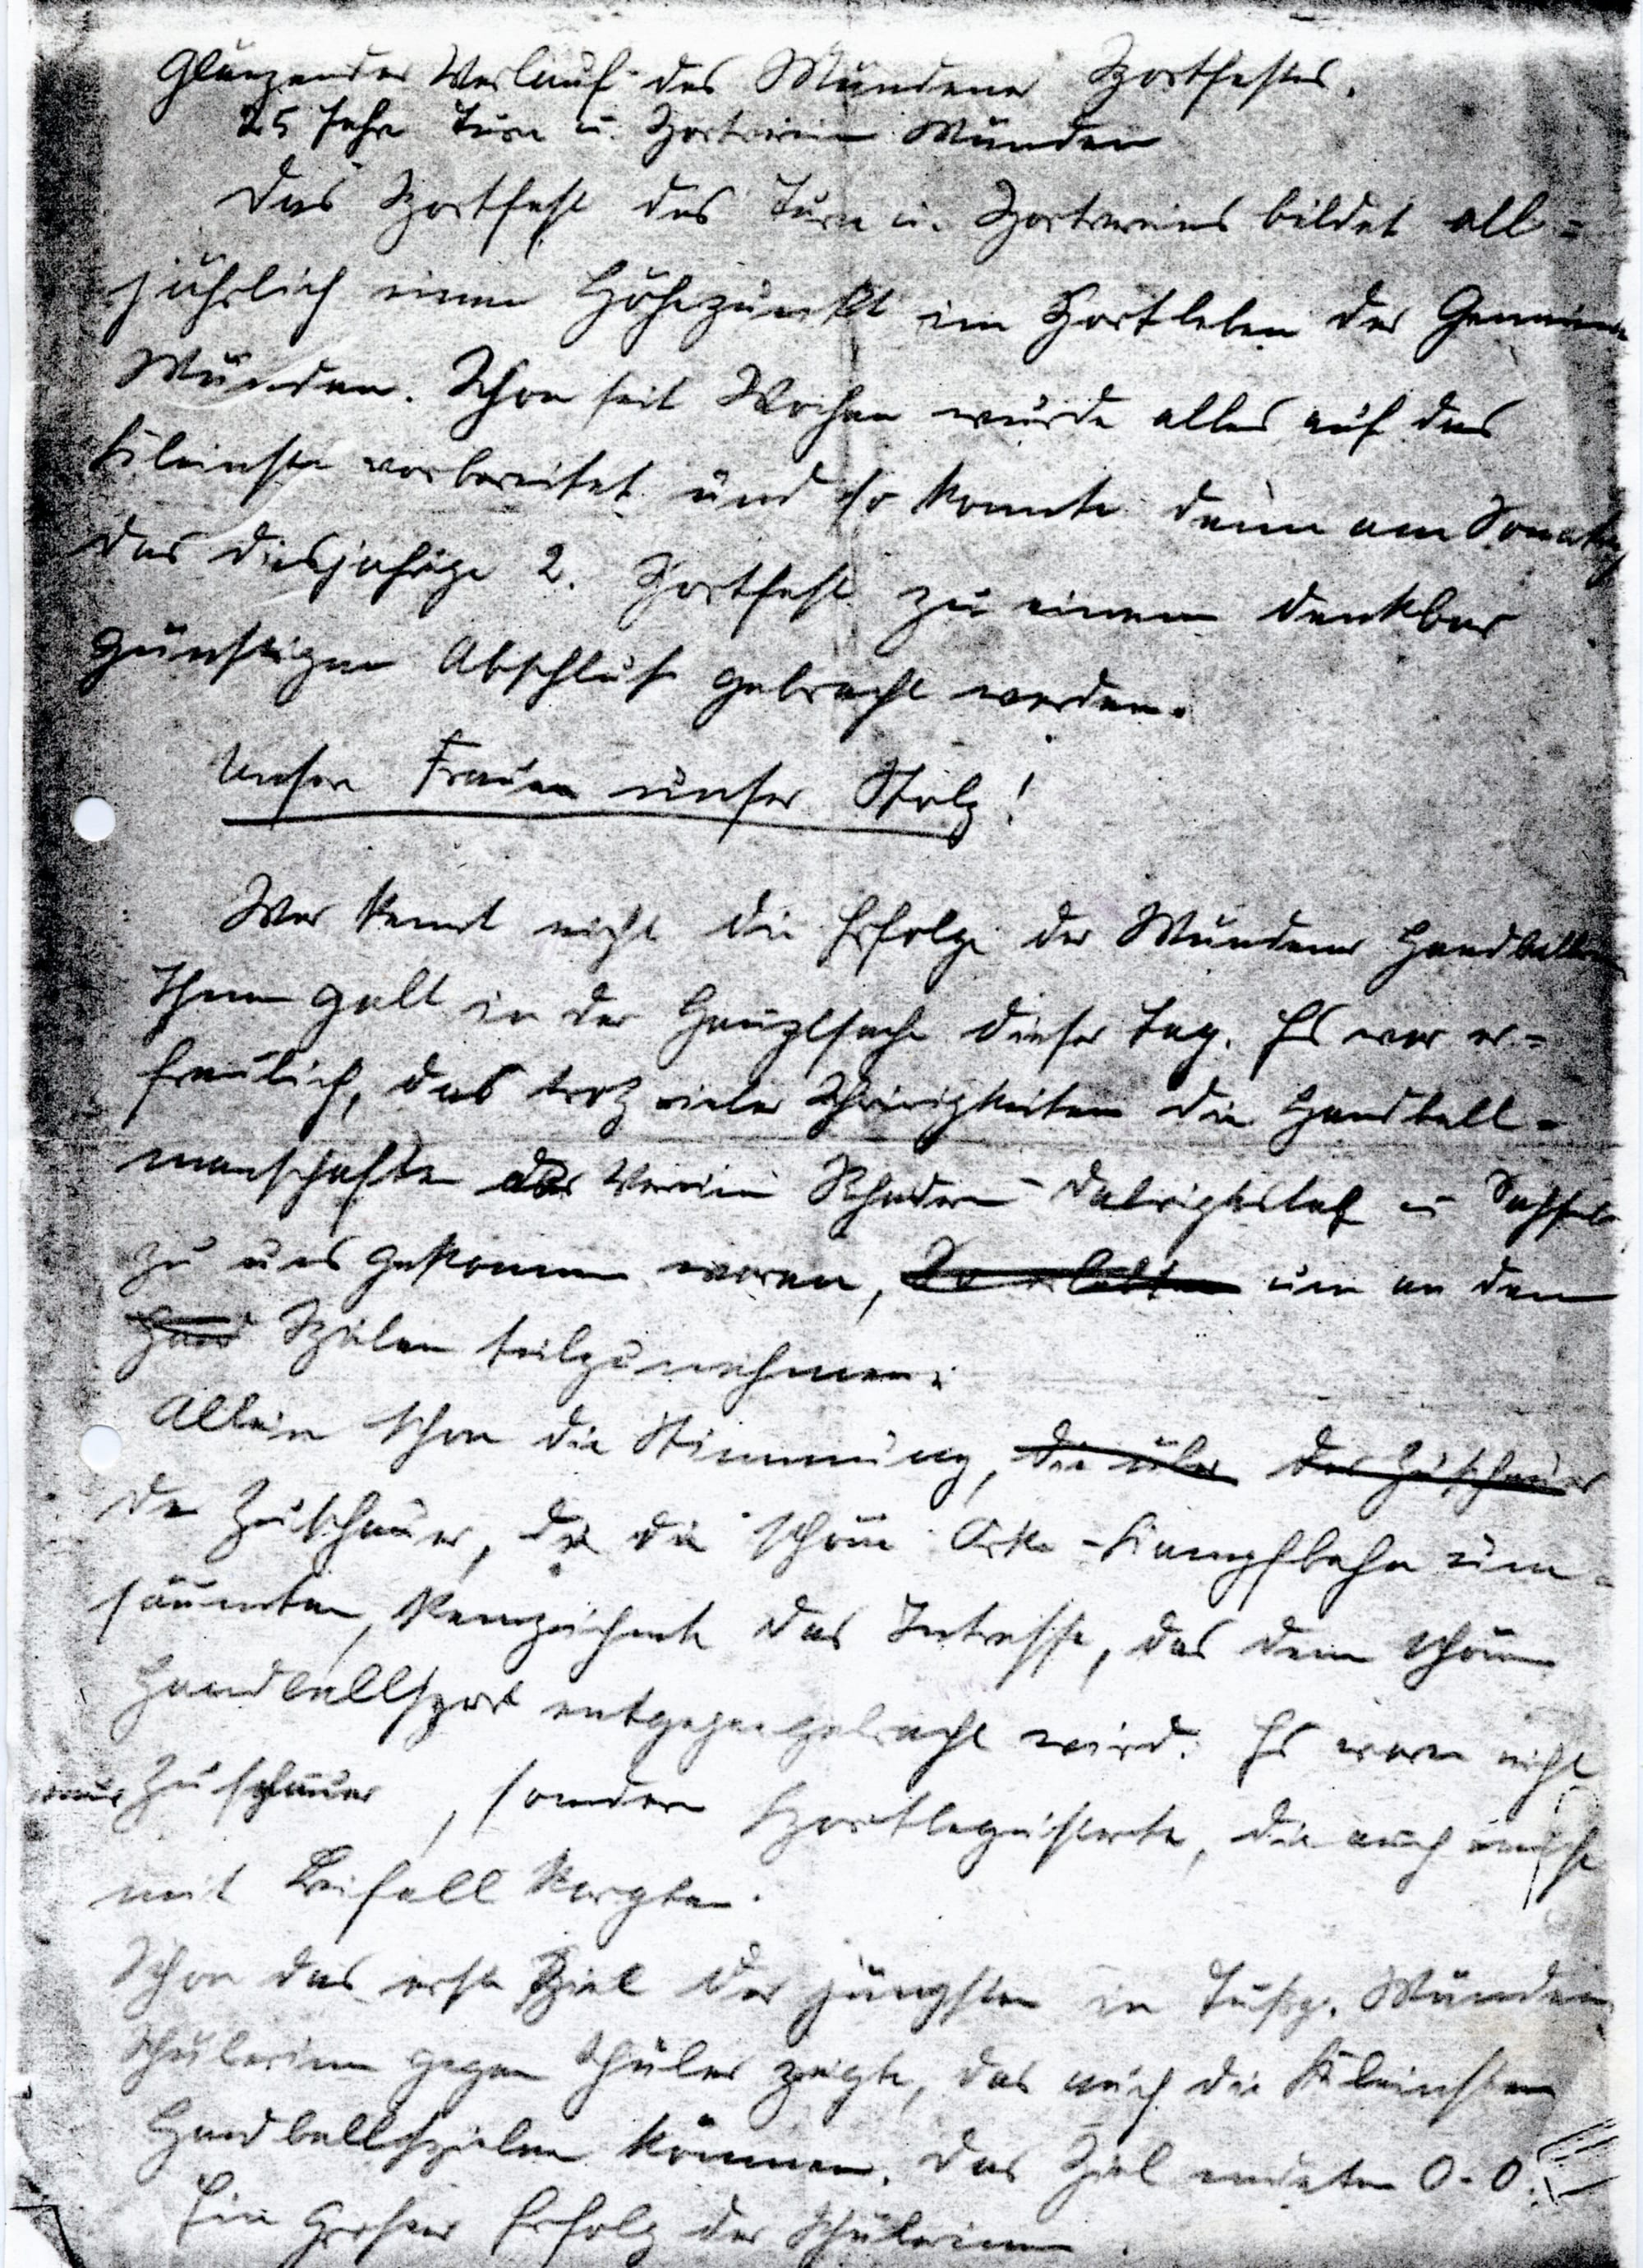 Glänzender Verlauf des Mündener Sportfestes.
25 Jahre Turn u. Sportverein Münden
Das Sportfest des Turn u. Sportvereins bildet all=
jährlich einen Höhepunkt im Sportleben der Gemeinde
Münden. Schon seit Wochen wurde alles auf das
Kleinste vorbereitet und so konnte denn am Sonntag
das diesjährige 2. Sportfest zu einem denkbar
günstigen Abschluß gebracht werden.
Unsere Frauen unser Stolz!
Wer kennt nicht die Erfolge der Mündener Handballer
Ihnen galt in der Hauptsache dieser Tag. Es war er=
freulich, das trotz vieler Schwierigkeiten die Handball=
manschaften der Vereine Rhadern - Dalwigksthal u Sachsenb
zu uns gekommen waren, um an den
Hand Spielen teilzunehmen.
Allein schon die Stimmung, die über der Zuschauer
der Zuschauer, die die schöne Orke-Kampfbahn um=
säumten, kenzeichnete das Intresse, das dem schönen
Handballsport entgegengebracht wird. Es waren nicht
nur Zuschauer, sondern Sportbegeisterte, die auch nicht
mit Beifall kargten.
Schon das erste Spiel der jüngsten in TuSp. Münden
Schülerinen gegen Schüler zeigte, das auch die Kleinsten
Handballspielen können. Das Spiel endete 0-0.
Ein Großer Erfolg der Schülerinen.